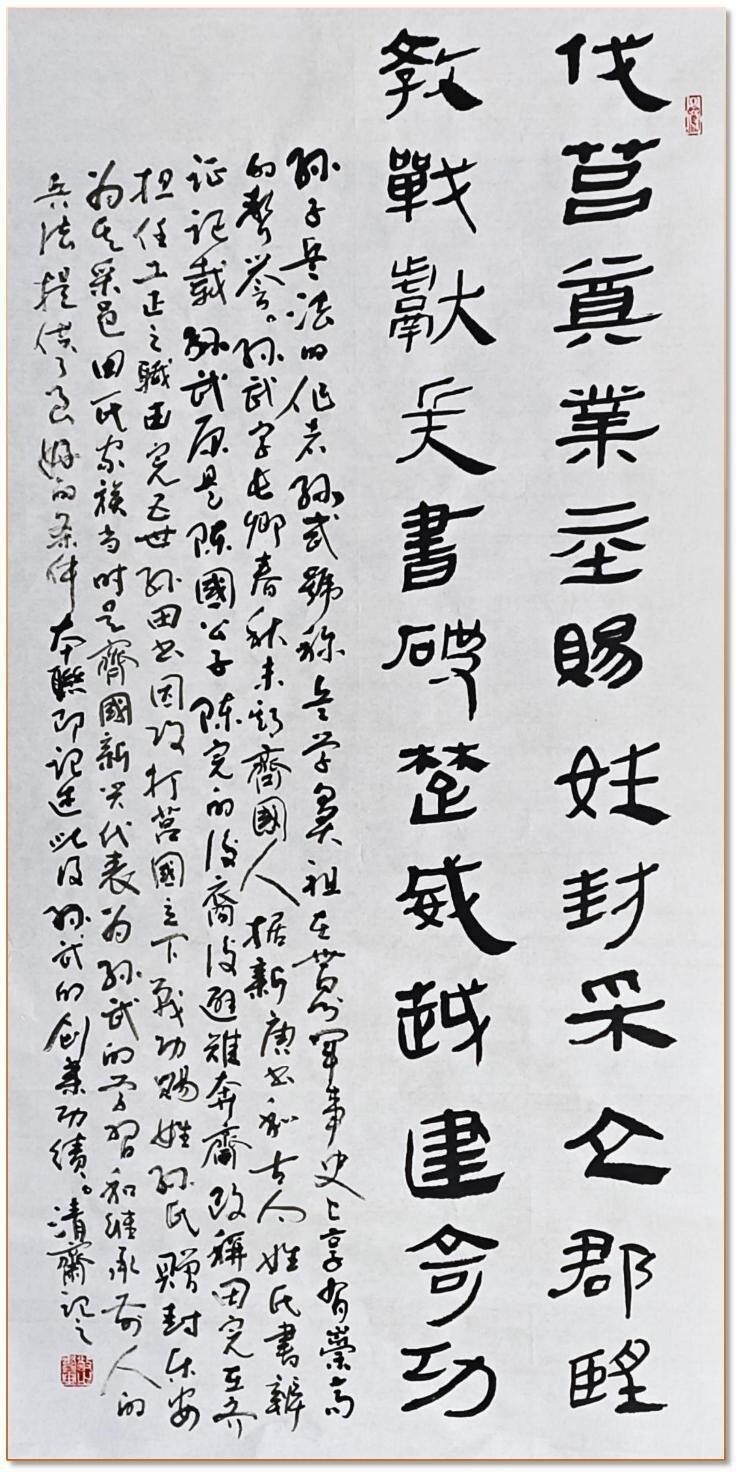 伐莒奠業賜姓封采郡
教戰獻兵書破楚威越建奇功
孙子兵法的作者孙武號称兵学鼻祖在世界军事史上享有崇高
的聲誉。孙武字长卿春秋末期齊國人据新唐书和古今姓氏書辨
证记载孙武原是陈國公子陈完的後裔後避難奔齊改稱田完在齐
担任工正之職田完五世孙田书因攻打莒國立下战功賜姓孙氏赠封乐安
为其采邑田氏家族当时是齊國新兴代表为孙武的学習和继承前人的
兵法提供了良好的条件本聯即记述此及孙武的创業功绩。清齋记之